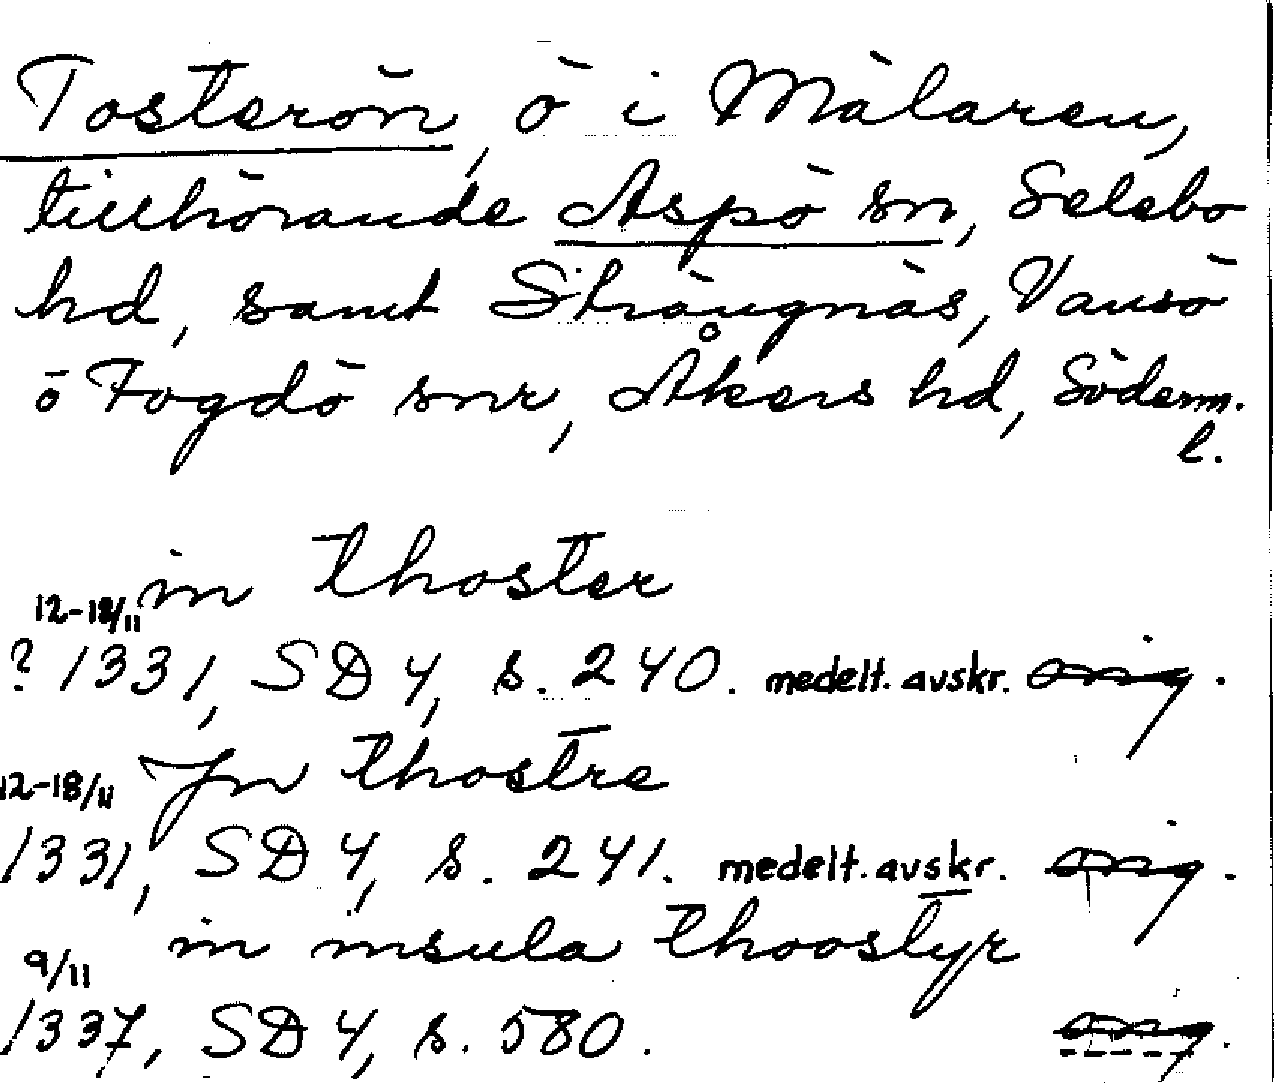 Tosterön, ö i Mälaren,
tillhörande Aspö sn, Selebo
hd, samt Strängnäs, Vansö
o Fogdö snr, Åkers hd, Söderm.
l.
in thoster
12-18/11
? 1331, SD 4, s. 240. medelt. avskr. orig.
Jn thostre
12-18/11
1331, SD 4, s. 241. medelt. avskr. orig.
in insula thoostyr
9/11
1337, SD 4, s. 580. orig.